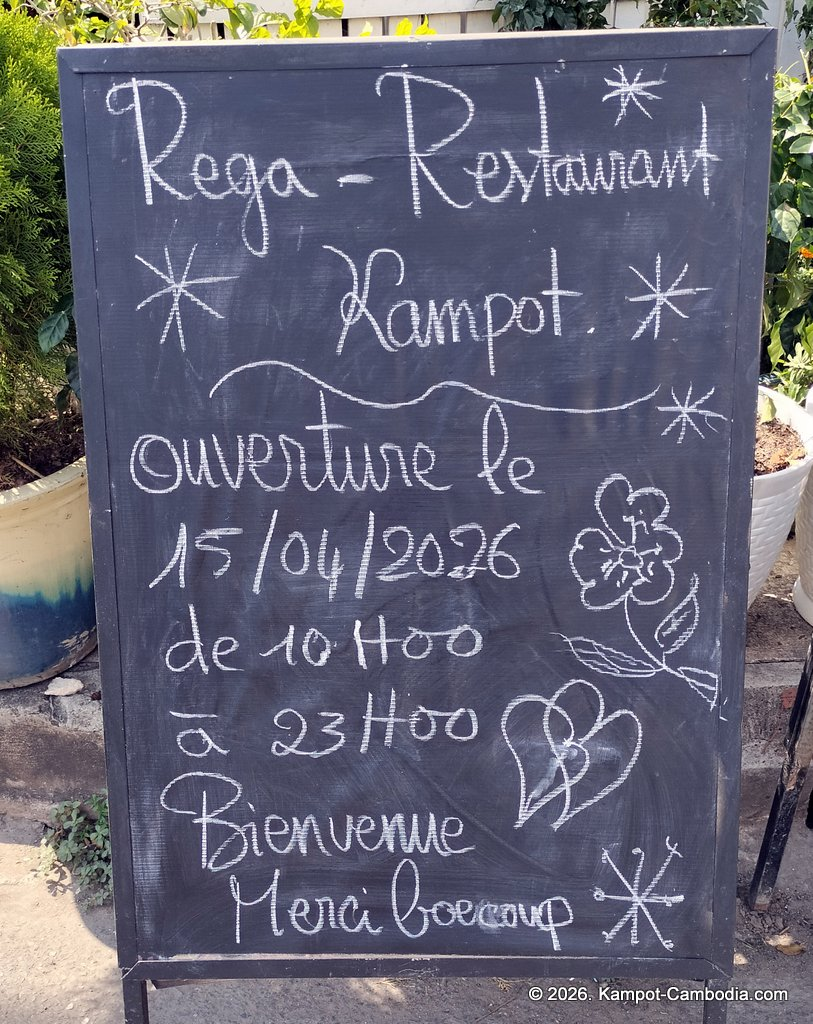 Rega - Restaurant
Kampot.
ouverture le
15/04/2026
de 10H00
à 23H00
Bienvenue
Merci boecoup
© 2026. Kampot-Cambodia.com